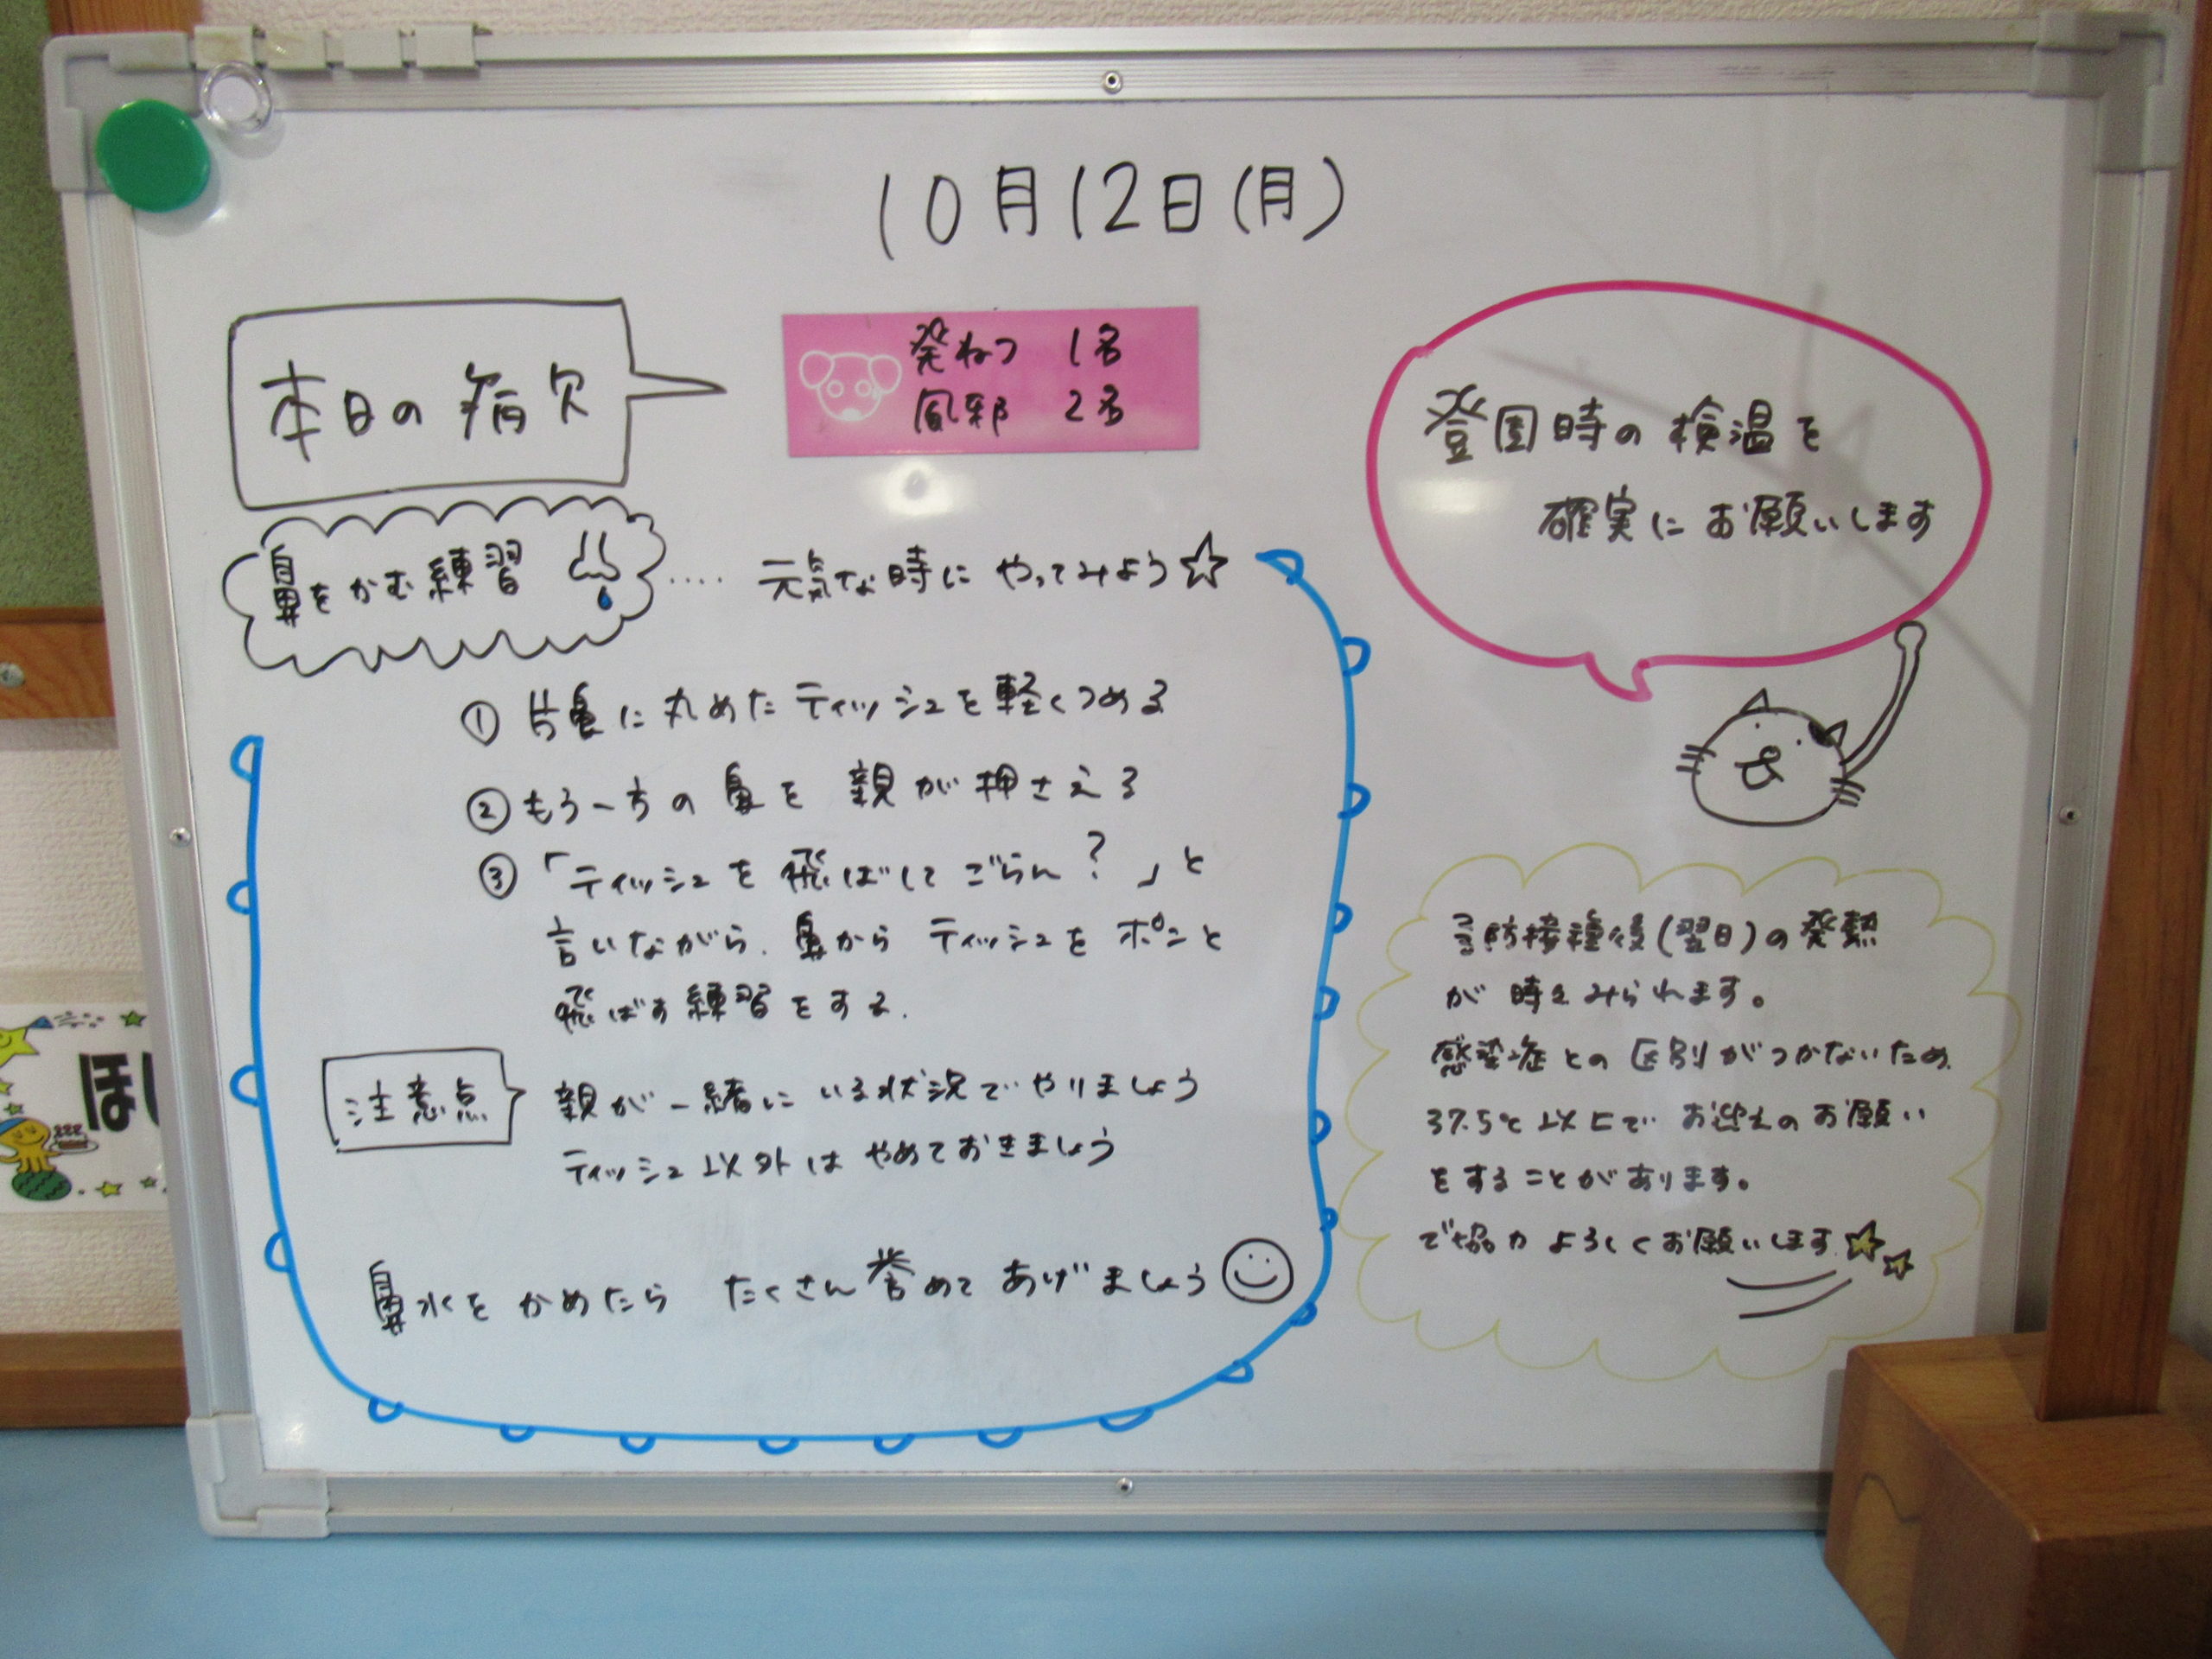 10月12日(月)
本日の病欠
発ねつ 1名
風邪 2名
鼻をかむ練習
‥‥ 元気な時に やってみよう☆
① 片鼻に丸めた ティッシュを軽くつめる
② もう一方の 鼻を 親が押さえる
③ 「ティッシュを 飛ばして ごらん？」と
言いながら、鼻から ティッシュを ポンと
飛ばす練習をする.
注意点
親が一緒に いる状況で やりましょう
ティッシュ以外は やめておきましょう
鼻水を かめたら たくさん誉めて あげましょう
登園時の検温を
確実に お願いします
予防接種後(翌日)の発熱
が 時々みられます。
感染症との区別がつかないため、
37.5℃以上で お迎えのお願い
をすることがあります。
ご協力 よろしくお願いします
ほし